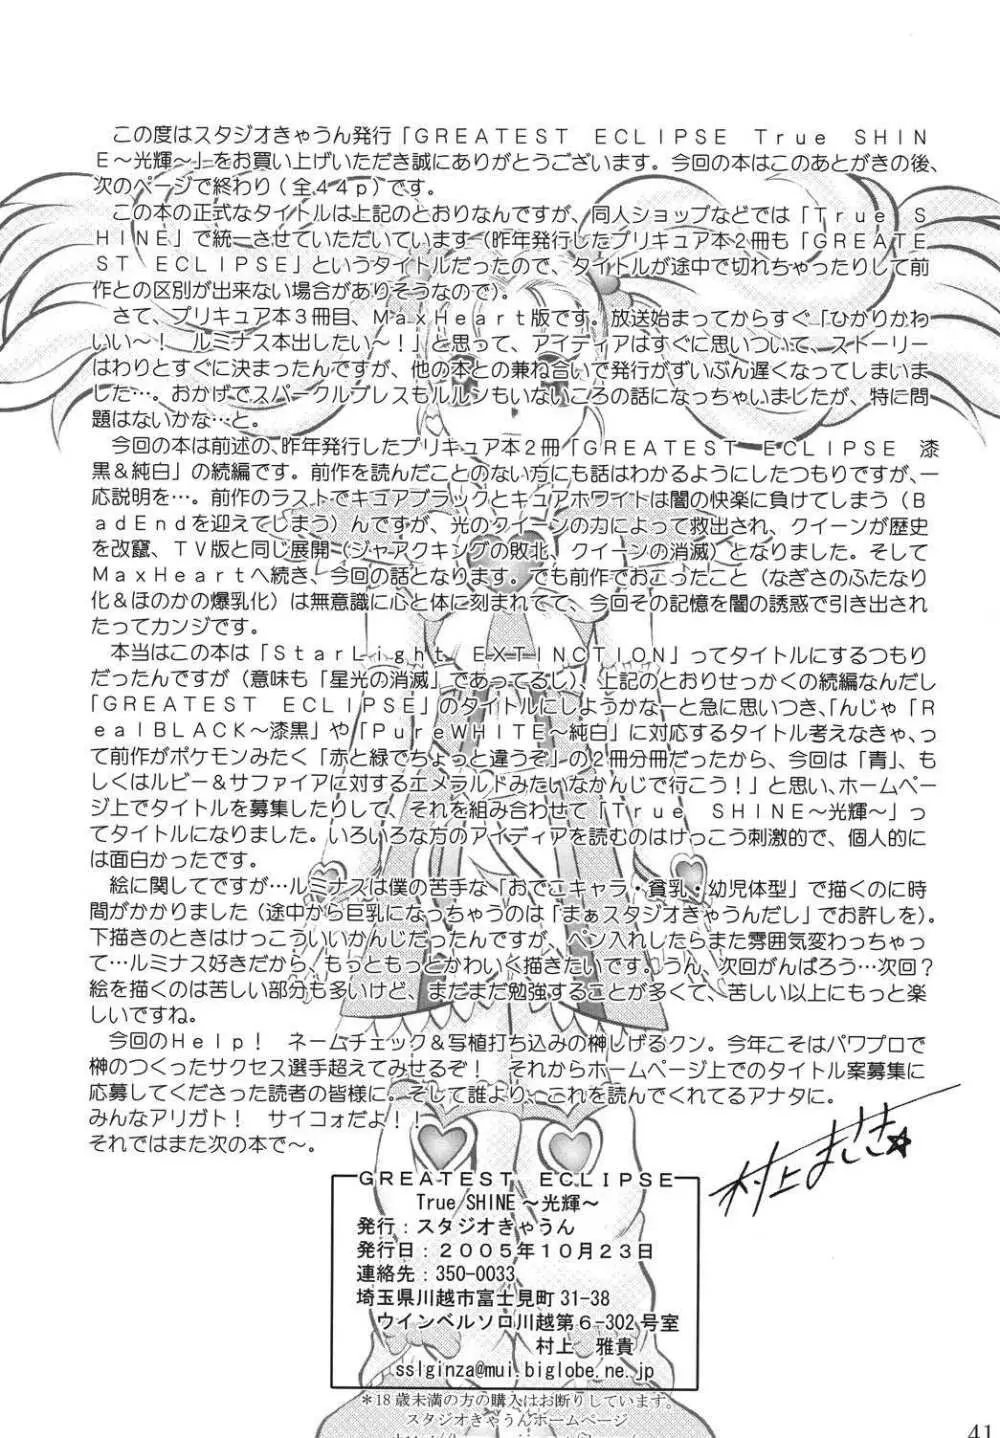 この度はスタジオきゃうん発行「ＧＲＥＡＴＥＳＴ　ＥＣＬＩＰＳＥ　Ｔｒｕｅ　ＳＨＩＮ
Ｅ～光輝～」をお買い上げいただき誠にありがとうございます。今回の本はこのあとがきの後、
次のページで終わり（全４４ｐ）です。
この本の正式なタイトルは上記のとおりなんですが、同人ショップなどでは「Ｔｒｕｅ　Ｓ
ＨＩＮＥ」で統一させていただいています（昨年発行したプリキュア本２冊も「ＧＲＥＡＴＥ
ＳＴ　ＥＣＬＩＰＳＥ」というタイトルだったので、タイトルが途中で切れちゃったりして前
作との区別が出来ない場合がありそうなので）。
さて、プリキュア本３冊目、ＭａｘＨｅａｒｔ版です。放送始まってからすぐ「ひかりかわ
いい～！　ルミナス本出したい～！」と思って、アイディアはすぐに思いついて、ストーリー
はわりとすぐに決まったんですが、他の本との兼ね合いで発行がずいぶん遅くなってしまいま
した…。おかげでスパークルブレスもルルンもいないころの話になっちゃいましたが、特に問
題はないかな…と。
今回の本は前述の、昨年発行したプリキュア本２冊「ＧＲＥＡＴＥＳＴ　ＥＣＬＩＰＳＥ　漆
黒＆純白」の続編です。前作を読んだことのない方にも話はわかるようにしたつもりですが、一
応説明を…。前作のラストでキュアブラックとキュアホワイトは闇の快楽に負けてしまう（Ｂ
ａｄＥｎｄを迎えてしまう）んですが、光のクイーンの力によって救出され、クイーンが歴史
を改竄、ＴＶ版と同じ展開（ジャアクキングの敗北、クイーンの消滅）となりました。そして
ＭａｘＨｅａｒｔへ続き、今回の話となります。でも前作でおこったこと（なぎさのふたなり
化＆ほのかの爆乳化）は無意識に心と体に刻まれてて、今回その記憶を闇の誘惑で引き出され
たってカンジです。
本当はこの本は「ＳｔａｒＬｉｇｈｔ　ＥＸＴＩＮＣＴＩＯＮ」ってタイトルにするつもり
だったんですが（意味も「星光の消滅」であってるし）、上記のとおりせっかくの続編なんだし
「ＧＲＥＡＴＥＳＴ　ＥＣＬＩＰＳＥ」のタイトルにしようかなーと急に思いつき、「んじゃ「Ｒ
ｅａｌＢＬＡＣＫ～漆黒」や「ＰｕｒｅＷＨＩＴＥ～純白」に対応するタイトル考えなきゃ、っ
て前作がポケモンみたく「赤と緑でちょっと違うぞ」の２冊分冊だったから、今回は「青」、も
しくはルビー＆サファイアに対するエメラルドみたいなかんじで行こう！」と思い、ホームペー
ジ上でタイトルを募集したりして、それを組み合わせて「Ｔｒｕｅ　ＳＨＩＮＥ～光輝～」っ
てタイトルになりました。いろいろな方のアイディアを読むのはけっこう刺激的で、個人的に
は面白かったです。
絵に関してですが…ルミナスは僕の苦手な「おでこキャラ・貧乳・幼児体型」で描くのに時
間がかかりました（途中から巨乳になっちゃうのは「まぁスタジオきゃうんだし」でお許しを）。
下描きのときはけっこういいかんじだったんですが、ペン入れしたらまた雰囲気変わっちゃっ
て…ルミナス好きだから、もっともっとかわいく描きたいです。うん、次回がんばろう…次回？
絵を描くのは苦しい部分も多いけど、まだまだ勉強することが多くて、苦しい以上にもっと楽
しいですね。
今回のＨｅｌｐ！　ネームチェック＆写植打ち込みの榊しげるクン。今年こそはパワプロで
榊のつくったサクセス選手超えてみせるぞ！　それからホームページ上でのタイトル案募集に
応募してくださった読者の皆様に。そして誰より、これを読んでくれてるアナタに。
みんなアリガト！　サイコォだよ！！
それではまた次の本で～。
村上まさき☆
ＧＲＥＡＴＥＳＴ　ＥＣＬＩＰＳＥ
True SHINE～光輝～
発行：スタジオきゃうん
発行日：２００５年１０月２３日
連絡先：350-0033
埼玉県川越市富士見町31-38
ウインベルソロ川越第６-302号室
村上　雅貴
sslginza@mui.biglobe.ne.jp
＊18歳未満の方の購入はお断りしています。
スタジオきゃうんホームページ
41